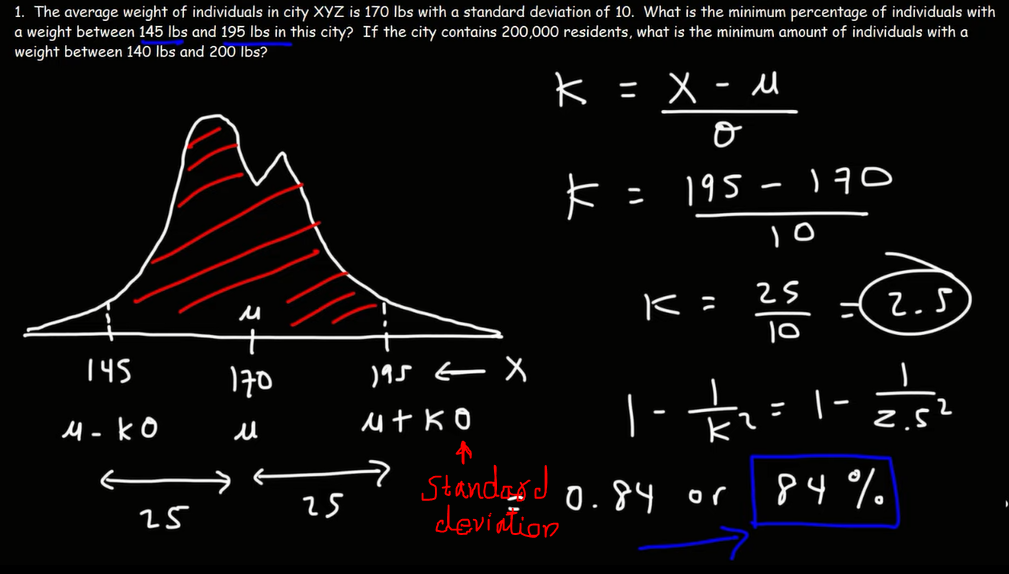 1. The average weight of individuals in city XYZ is 170 lbs with a standard deviation of 10. What is the minimum percentage of individuals with
a weight between 145 lbs and 195 lbs in this city? If the city contains 200,000 residents, what is the minimum amount of individuals with a
weight between 140 lbs and 200 lbs?
K = (X - μ) / σ
K = (195 - 170) / 10
K = 25/10 = 2.5
μ
145 170 195 ← X
μ - Kσ μ μ + Kσ
1 - 1/K² = 1 - 1/2.5²
25 25
Standard
deviation
= 0.84 or 84%